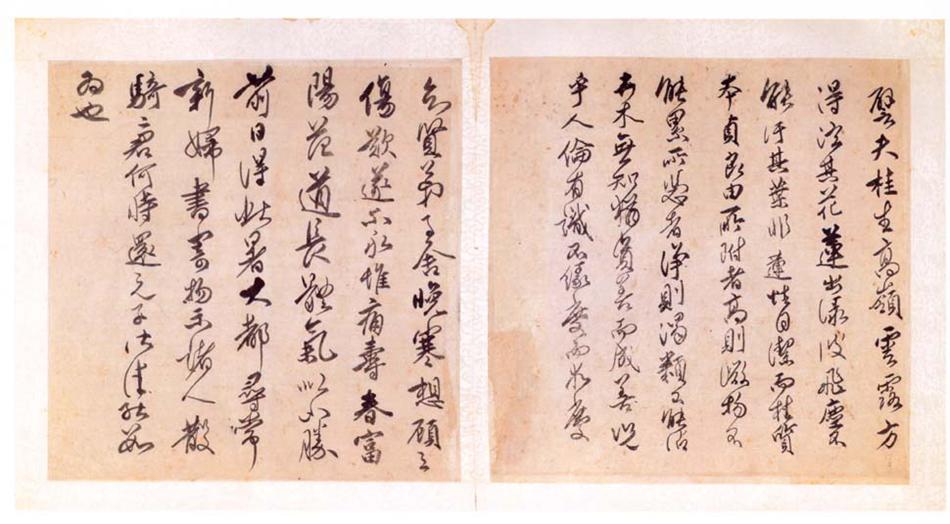 譬夫桂生高嶺雲露方
得泫其花蓮出淥波飛塵不
能汙其葉非蓮性自潔而桂質
本貞良由所附者高則微物不
能累所憑者淨則濁類不能沾
卉木無知猶資善而成善況
乎人倫有識不緣慶而求慶
賢弟舍晚寒想顧
傷歎遂不永惟痛壽春富
陽道長體氣以不勝
前日得此署大都尋常
新婦書寄物示諸人散
騎君何時還
為也